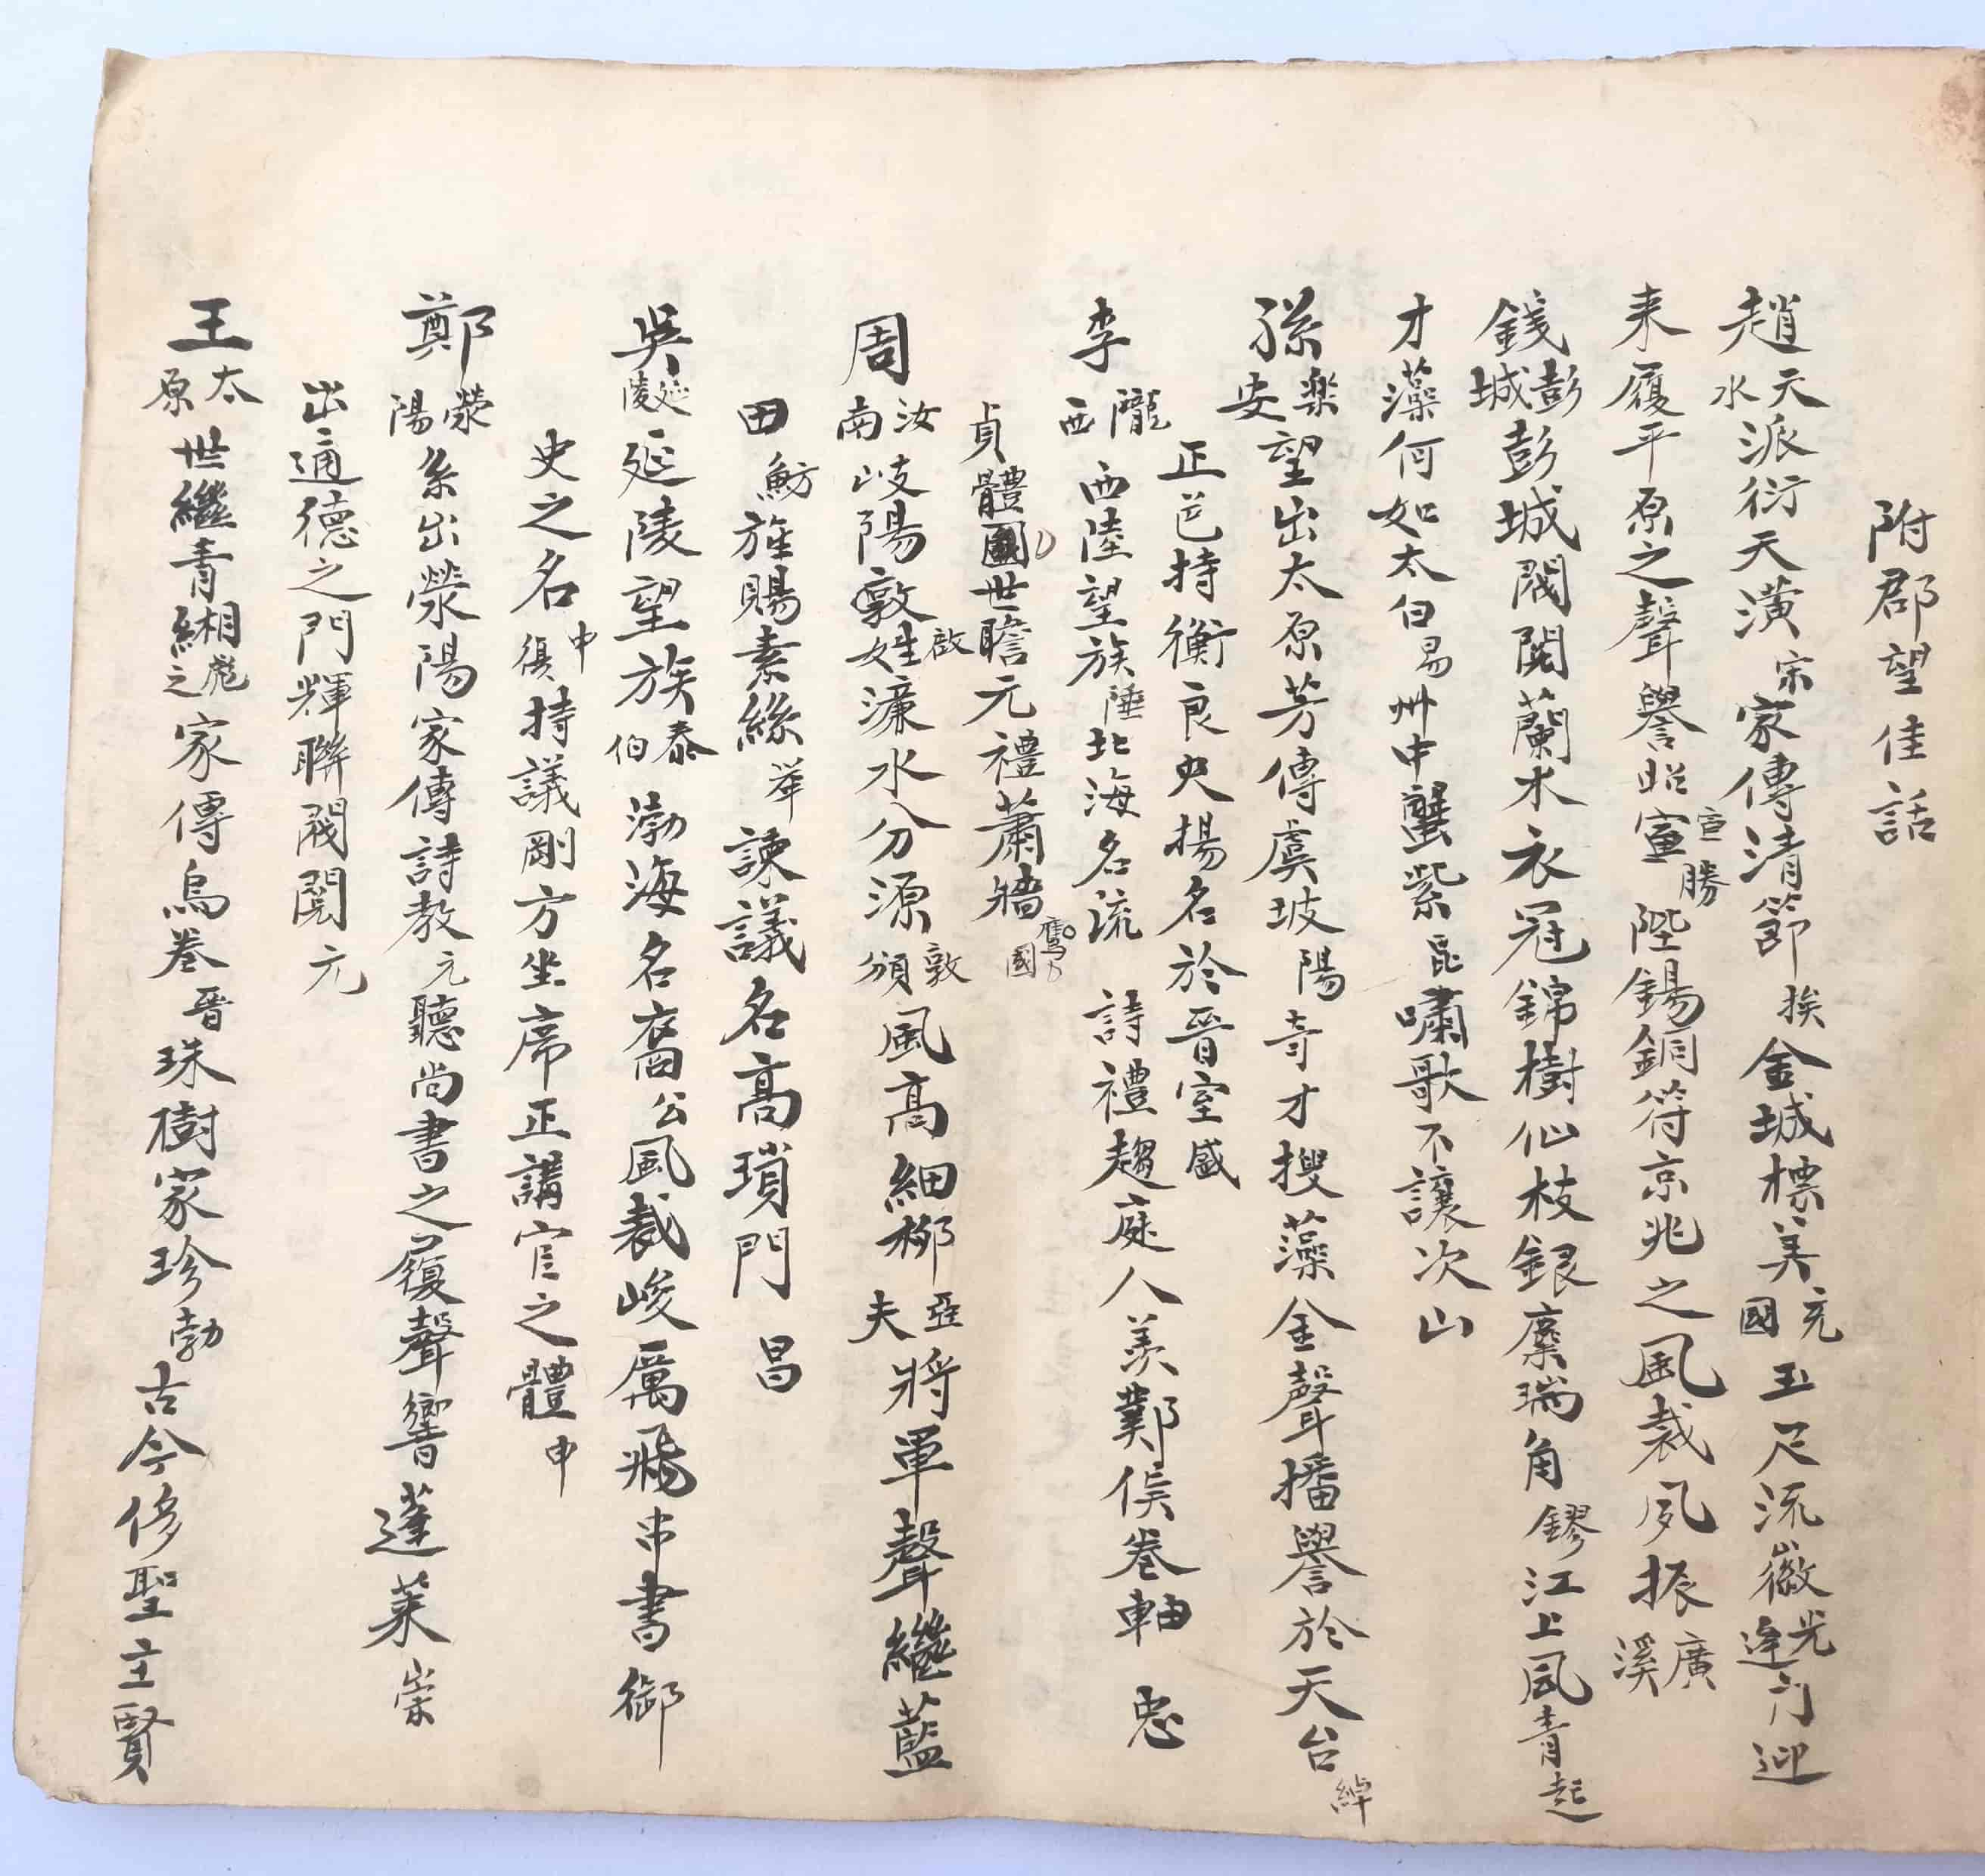 附郡望佳話
趙天水派衍天潢宗家傳清節挨金城標美充國玉尺流徽光逢門迎
来履平原之聲譽昭宣宣勝陛錫銅符京兆之風裁夙振廣溪
錢彭城彭城閥閱蘭水衣冠錦樹仙枝銀麋瑞角鏐江上風青起
才藻何如太白易州中蠶紫昆嘯歌不讓次山
孫樂安望出太原芳傳虞坡陽奇才搜藻金聲播譽於天台綽
正色持衡良史揚名於晉室盛
李隴西西陸望族陲北海名流詩禮趨庭人羨鄴侯卷軸忠
貞體國世瞻元禮蕭牆鷹國
周汝南岐陽啟姓濂水分源敦頤風高細柳亞夫將軍聲繼藍
田魴旌賜素絲舉諫議名高瑣門昌
吳延陵延陵望族泰伯渤海名裔公風裁峻厲飛串書御
史之名中復持議剛方坐席正講官之體申
鄭滎陽系出滎陽家傳詩教元聽尚書之履聲響蓬萊崇
出通德之門輝聯閥閱元
王太原世繼青緗彪之家傳烏卷晉珠樹家珍勃古今修聖主賢